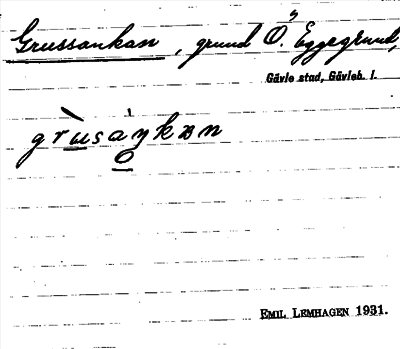 Grussankan, grund Ö. Eggegrund,
Gävle stad, Gävleb. l.
grùsaŋkan
o
EMIL LEMHAGEN 1931.